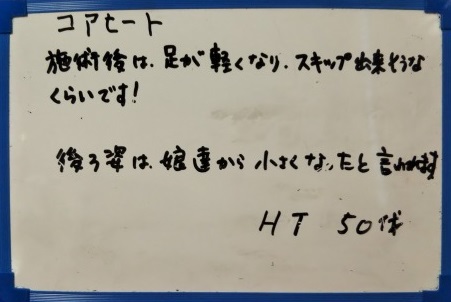 コアヒート
施術後は、足が軽くなり、スキップ出来そうな
くらいです!
後ろ姿は、娘達から小さくなったと言われます
HT 50代